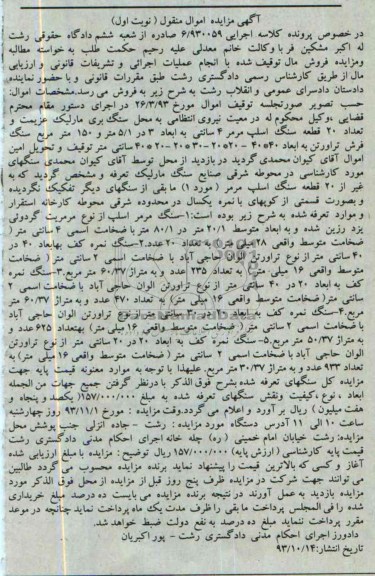 آگهی مزایده اموال منقول ( نوبت اول)
در خصوص پرونده کلاسه اجرایی ۶/۹۳۰۰۵۹ صادره از شعبه ششم دادگاه حقوقی رشت
له اکبر مشکین فر با وکالت خانم معدلی علیه رحیم حکمت طلب به خواسته مطالبه
ومزایده فروش مال توقیف شده با انجام عملیات اجرائی و تشریفات قانونی و ارزیابی
مال از طریق کارشناس رسمی دادگستری رشت طبق مقررات قانونی و با حضور نماینده
دادستان دادسرای عمومی و انقلاب رشت به شرح زیر به فروش می رسد.مشخصات اموال:
حسب تصویر صورتجلسه توقیف اموال مورخ ۲۶/۳/۹۳ در اجرای دستور مقام محترم
قضایی ،وکیل محکوم له در معیت نیروی انتظامی به محل سنگ بری مارلیک عزیمت و
تعداد ۲۰ قطعه سنگ اسلپ مرمر ۴ سانتی به ابعاد ۳ در ۱/۵ متر و ۱۵۰ متر مربع سنگ
فرش تراورتن به ابعاد ۴۰*۴۰ -۲۰*۲۰ -۳۰*۲۰ -۲۰*۴۰ سانتی متر توقیف و تحویل امین
اموال آقای کیوان محمدی گردید در بازدید از محل توسط آقای کیوان محمدی سنگهای
مورد کارشناسی در محوطه شرقی صنایع سنگ مارلیک تعرفه و مشخص گردید که به
غیر از ۲۰ قطعه سنگ اسلپ مرمر ( مورد ۱) مابقی از سنگهای دیگر تفکیک نگردیده
و بصورت قسمتی از کوپهای با نمره یکسال در محدوده شرقی محوطه کارخانه استقرار
و موارد تعرفه شده به شرح زیر بوده است:۱-سنگ مرمر اسلپ از نوع مرمریت گردوئی
یزد رزین شده و به ابعاد متوسط ۲۰/۱ متر در ۸۰/۱ متر با ضخامت اسمی ۴ سانتی متر (
ضخامت متوسط واقعی ۲۸ میلی متر) به تعداد ۲۰ عدد.۲-سنگ نمره کف بهابعاد ۴۰ در
۴۰ سانتی متر از نوع تراورتن الوان حاجی آباد با ضخامت اسمی ۲ سانتی متر ( ضخامت
متوسط واقعی ۱۶ میلی متر) به تعداد ۲۳۵ عدد و به متراژ ۶۰/۳۷ متر مربع.۳-سنگ نمره
کف به ابعاد ۲۰ در ۴۰ سانتی متر از نوع تراورتن الوان حاجی آباد با ضخامت اسمی ۲
سانتی متر( ضخامت متوسط واقعی ۱۶ میلی متر) به تعداد ۴۷۰ عدد و به متراژ ۶۰/۳۷ متر
مربع.۴-سنگ نمره کف به ابعاد ۲۰ در ۳۰ سانتی متر از نوع تراورتن الوان حاجی آباد
با ضخامت اسمی ۲ سانتی متر ( ضخامت متوسط واقعی ۱۶ میلی متر) بهتعداد ۶۲۵ عدد و
به متراژ ۵۰/۳۷ متر مربع.۵-سنگ نمره کف به ابعاد ۲۰ در ۲۰ سانتی متر از نوع تراورتن
الوان حاجی آباد با ضخامت اسمی ۲ سانتی متر ( ضخامت متوسط واقعی ۱۶ میلی متر) به
تعداد ۹۳۳ عدد و به متراژ ۳۰/۳۷ متر مربع.علیهذا با توجه به موارد معنونه قیمت پایه جهت
مزایده کل سنگهای تعرفه شده بشرح فوق الذکر با درنظر گرفتن جمیع جهات من الجمله
ابعاد ، نوع ،کیفیت ونقش سنگهای تعرفه شده به مبلغ ۱۵۷/۰۰۰/۰۰۰( یکصد و پنجاه و
هفت میلیون ) ریال برآورد و اعلام می گردد.وقت مزایده : مورخ ۹۳/۱۱/۱ روز چهارشنبه
ساعت ۱۰ الی ۱۱ آدرس دستگاه مورد مزایده : رشت - جاده انزلی جنب پوشش محل
مزایده: رشت خیابان امام خمینی ( ره) چله خانه اجرای احکام مدنی دادگستری رشت
قیمت پایه کارشناسی ( ارزش پایه) ۱۵۷/۰۰۰/۰۰۰ ریال توضیح : مزایده با مبلغ ارزیابی شده
آغاز و کسی که بالاترین قیمت را پیشنهاد نماید برنده مزایده محسوب می گردد طالبین
می توانند جهت شرکت در مزایده ظرف پنج روز قبل از مزایده از محل فوق الذکر مورد
مزایده بازدید به عمل آورند در نتیجه برنده مزایده می بایست ده درصد مبلغ خریداری
شده را فی المجلس پرداخت مابقی را ظرف مدت یک ماه پرداخت نماید چنانچه در موعد
مقرر پرداخت ننماید مبلغ ده درصد به نفع دولت ضبط خواهد شد.
دادورز اجرای احکام مدنی دادگستری رشت - پور اکبریان
تاریخ انتشار:۹۳/۱۰/۱۴